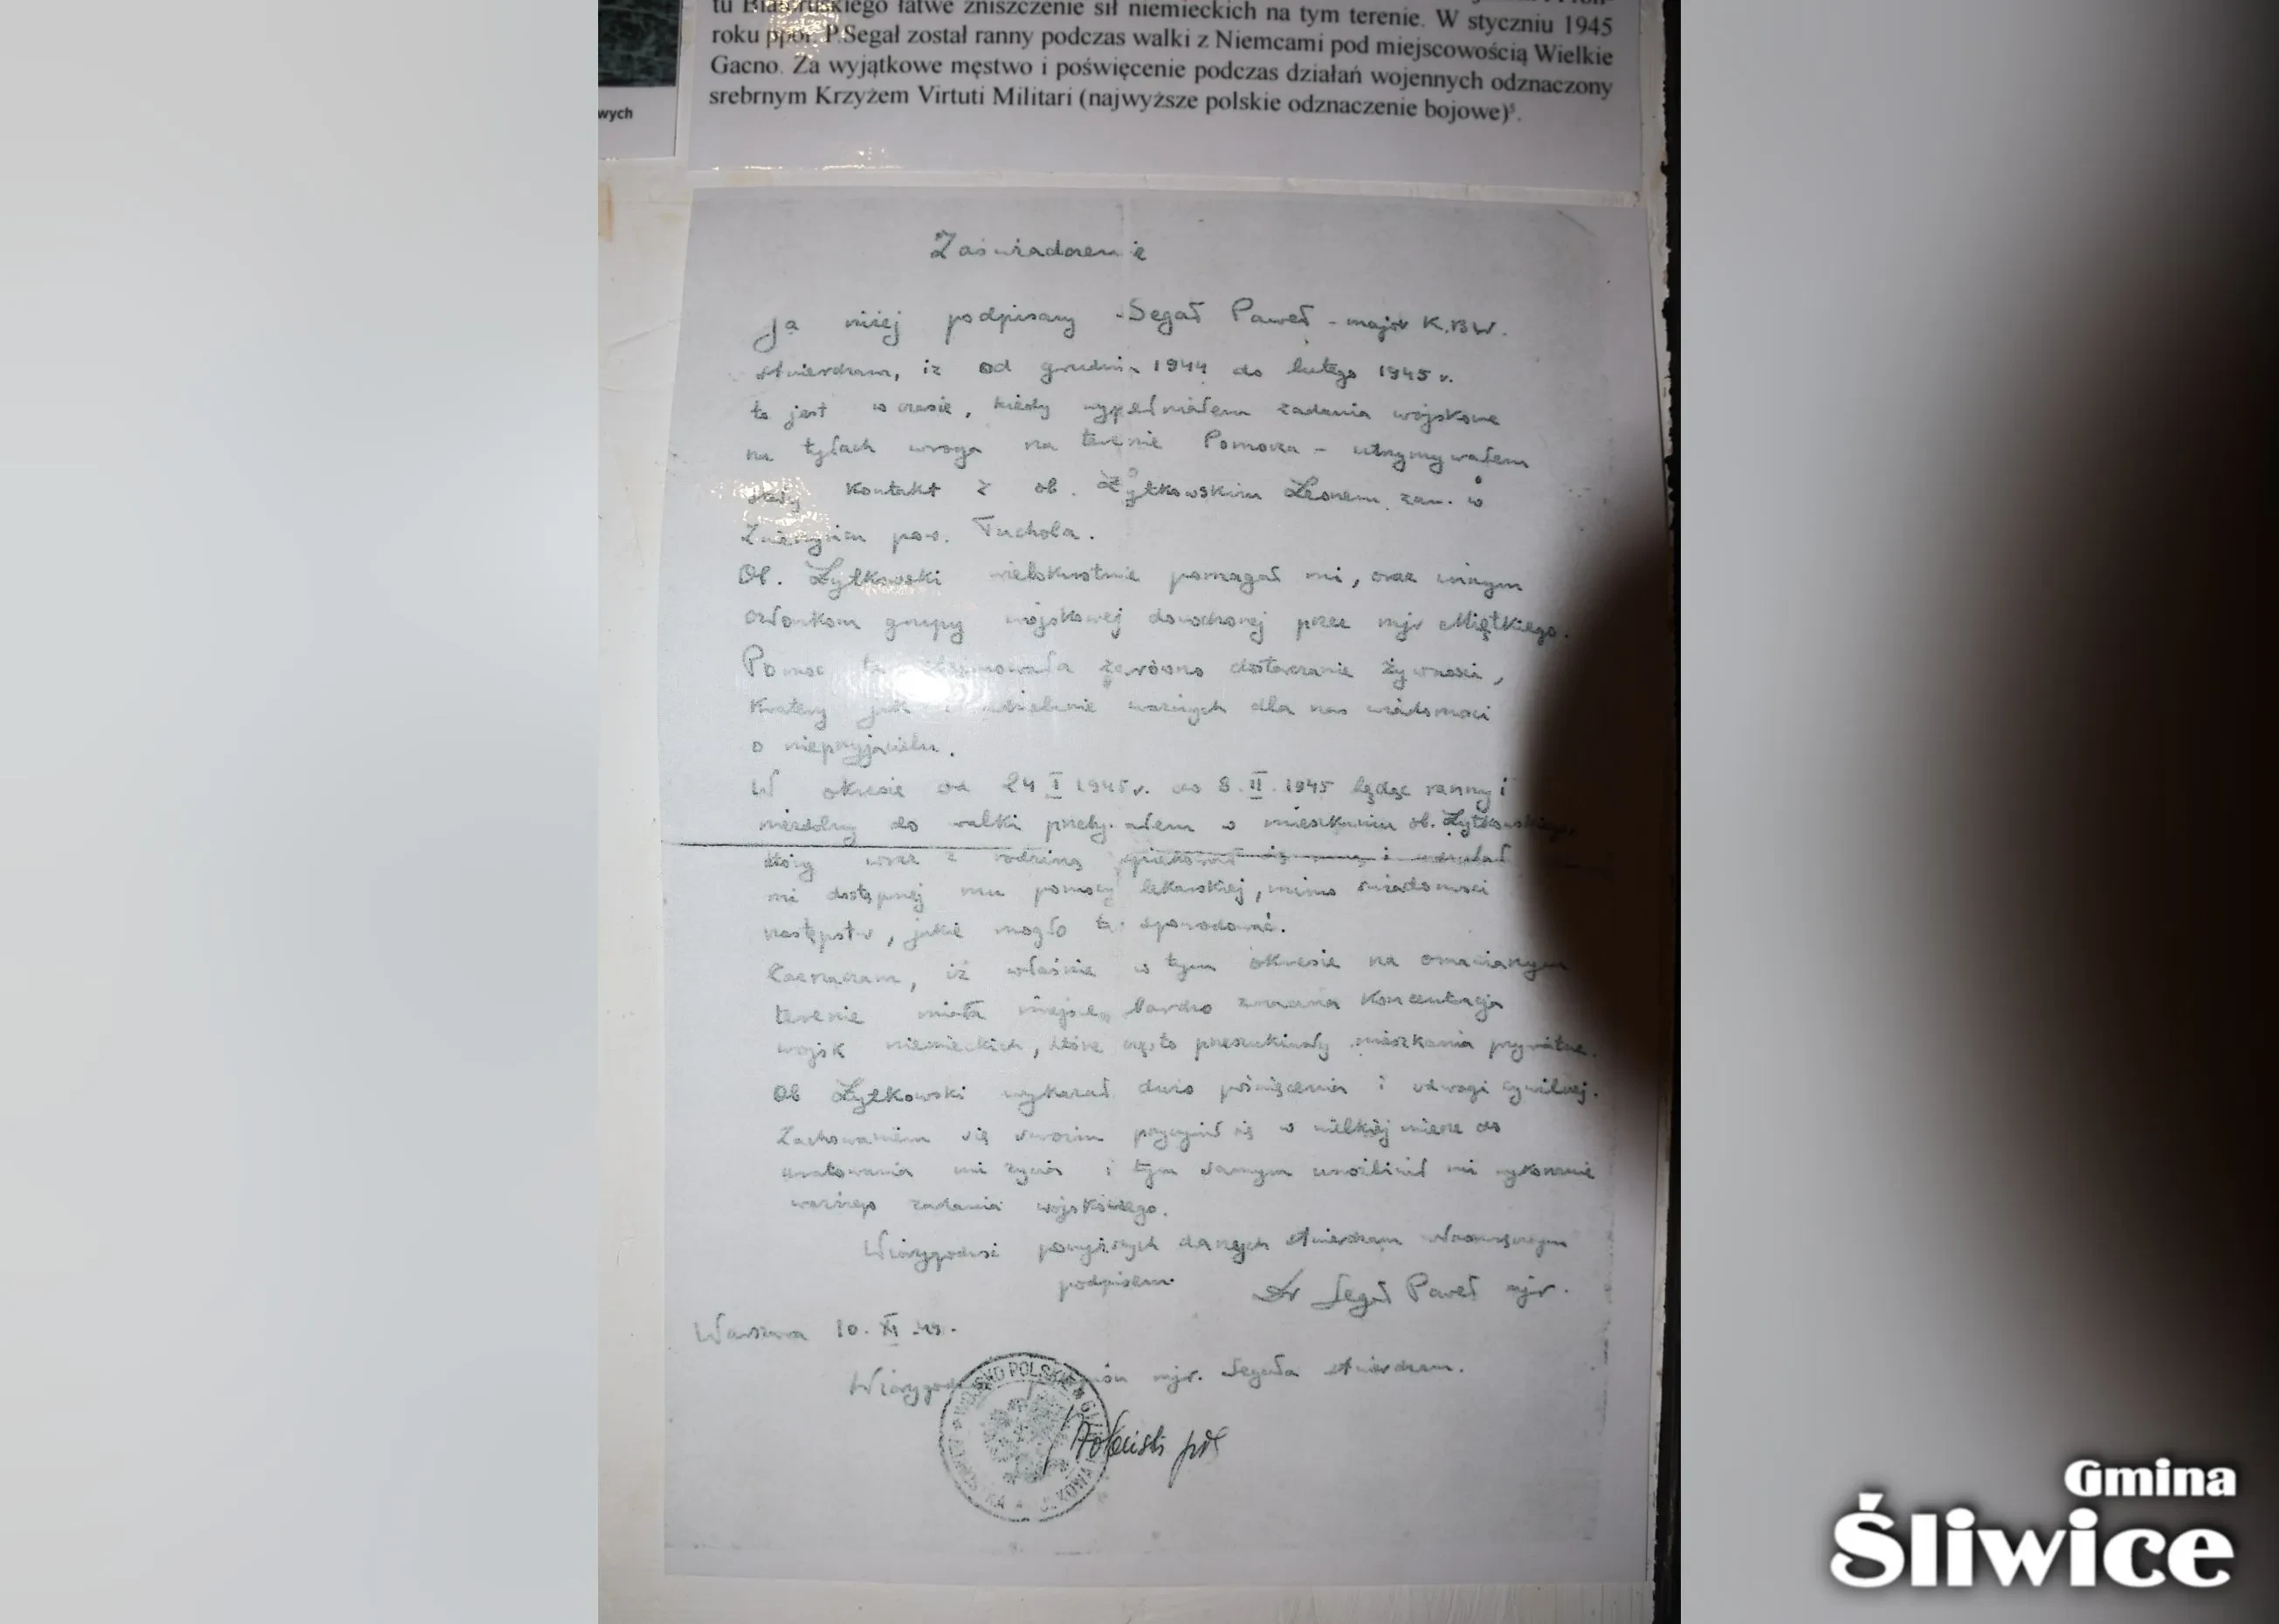 tu Białoruskiego łatwe zniszczenie sił niemieckich na tym terenie. W styczniu 1945
roku ppor. P.Segał został ranny podczas walki z Niemcami pod miejscowością Wielkie
Gacno. Za wyjątkowe męstwo i poświęcenie podczas działań wojennych odznaczony
srebrnym Krzyżem Virtuti Militari (najwyższe polskie odznaczenie bojowe)⁵.
wych
Zaświadczenie
Ja niżej podpisany Segał Paweł - major K.B.W.
stwierdzam, iż od grudnia 1944 do lutego 1945 r.
to jest w czasie, kiedy wypełniałem zadania wojskowe
na tyłach wroga na terenie Pomorza - utrzymywałem
stały kontakt z ob. Żytkowskim Leonem zam. w
pow. Tuchola.
Ob. Żytkowski wielokrotnie pomagał mi, oraz innym
członkom grupy wojskowej dowodzonej przez mjr Miętkiego.
Pomoc ta obejmowała zarówno dostarczanie żywności,
kwatery jak i udzielenie ważnych dla nas wiadomości
o nieprzyjacielu.
W okresie od 24 I 1945 r. do 8. II. 1945 będąc ranny i
niezdolny do walki przebywałem w mieszkaniu ob. Żytkowskiego,
który wraz z rodziną opiekował się mną i udzielał
mi dostępnej mu pomocy lekarskiej, mimo świadomości
następstw, jakie mogło to spowodować.
Zaznaczam, iż właśnie w tym okresie na omawianym
terenie miała miejsce bardzo znaczna koncentracja
wojsk niemieckich, które często przeszukiwały mieszkania prywatne.
Ob Żytkowski wykazał dużo poświęcenia i odwagi cywilnej.
Zachowaniem się swoim przyczynił się w wielkiej mierze do
uratowania mi życia i tym samym umożliwił mi wykonanie
ważnego zadania wojskowego.
Wiarygodność powyższych danych stwierdzam własnoręcznym
podpisem. Dr Segał Paweł mjr.
Warszawa 10. XI
mjr. Segała stwierdzam.
WOJSKO POLSKIE
Gmina
Śliwice